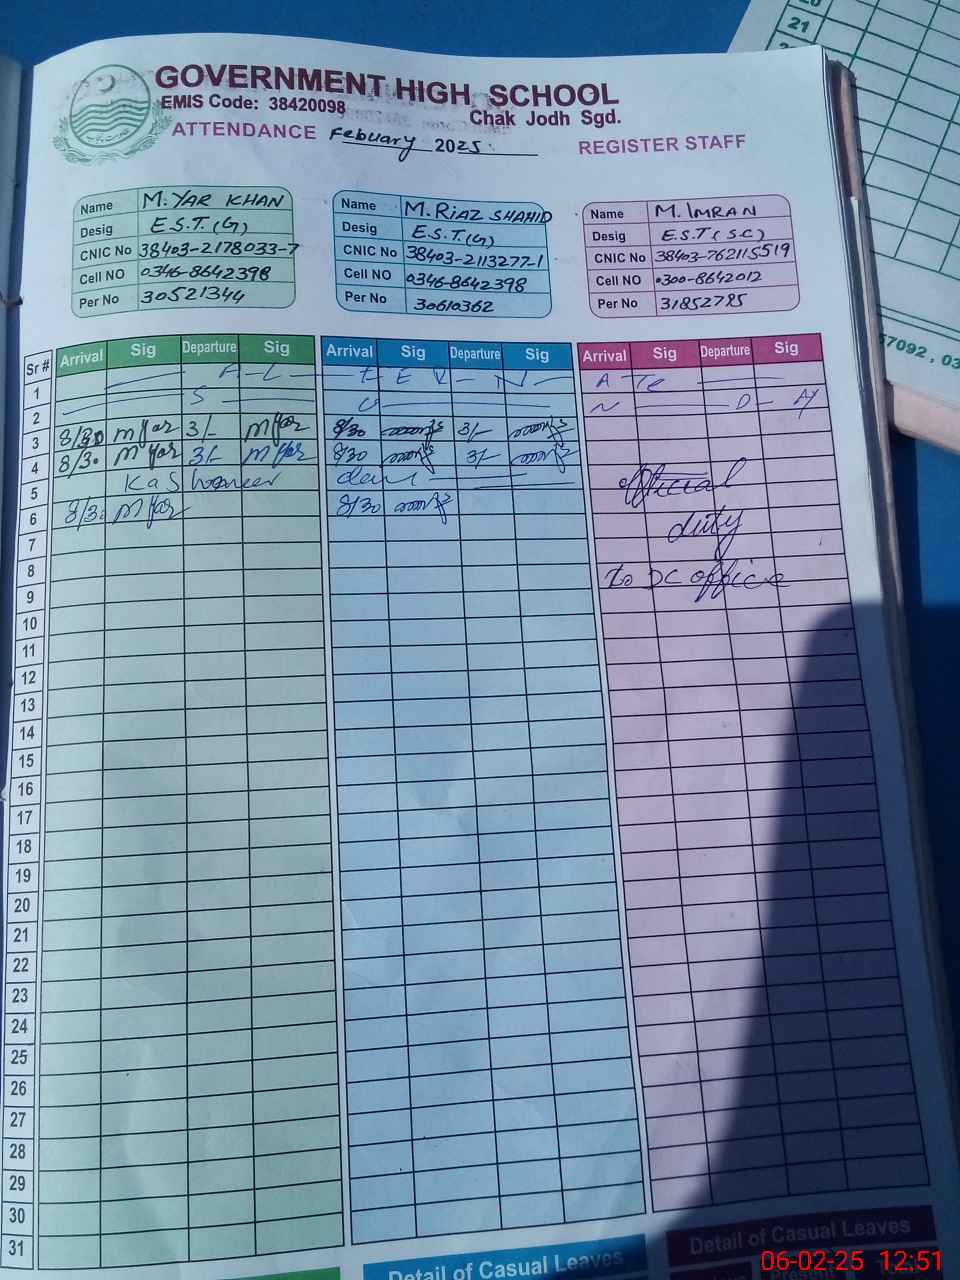 20
21
GOVERNMENT HIGH SCHOOL
EMIS Code: 38420098
Chak Jodh Sgd.
ATTENDANCE Febuary 2025 REGISTER STAFF
Name M. YAR KHAN
Desig E.S.T.(G)
CNIC No 38403-2178033-7
Cell NO 0346-8642398
Per No 30521344
Name M. RIAZ SHAHID
Desig E.S.T.(G)
CNIC No 38403-2113277-1
Cell NO 0346-8642398
Per No 30610362
Name M. IMRAN
Desig E.S.T(SC)
CNIC No 38403-762115519
Cell NO 0300-8642012
Per No 31852785
57092 , 03
Sr # Arrival Sig Departure Sig Arrival Sig Departure Sig Arrival Sig Departure Sig
1 A L t E R N A Te
2 S U N D A Y
3 8/30 M Yar 3/- M Yar 8/30 3/-
4 8/30 M Yar 3/- M Yar 8/30 3/-
5 Kashmeer day official
6 8/30 M Yar 8/30 duty
7
8 to DC office
9
10
11
12
13
14
15
16
17
18
19
20
21
22
23
24
25
26
27
28
29
30
31
Detail of Casual Leaves
Detail of Casual Leaves
06-02-25 12:51